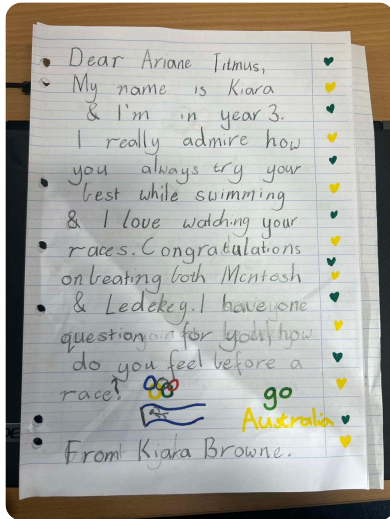 Dear Ariane Titmus,
My name is Kiara
& I'm in year 3.
I really admire how
you always try your
best while swimming
& I love watching your
races. Congratulations
on beating both Mcntosh
& Ledekey. I have one
question for you how
do you feel before a
race?
go
Australia
From Kiara Browne.